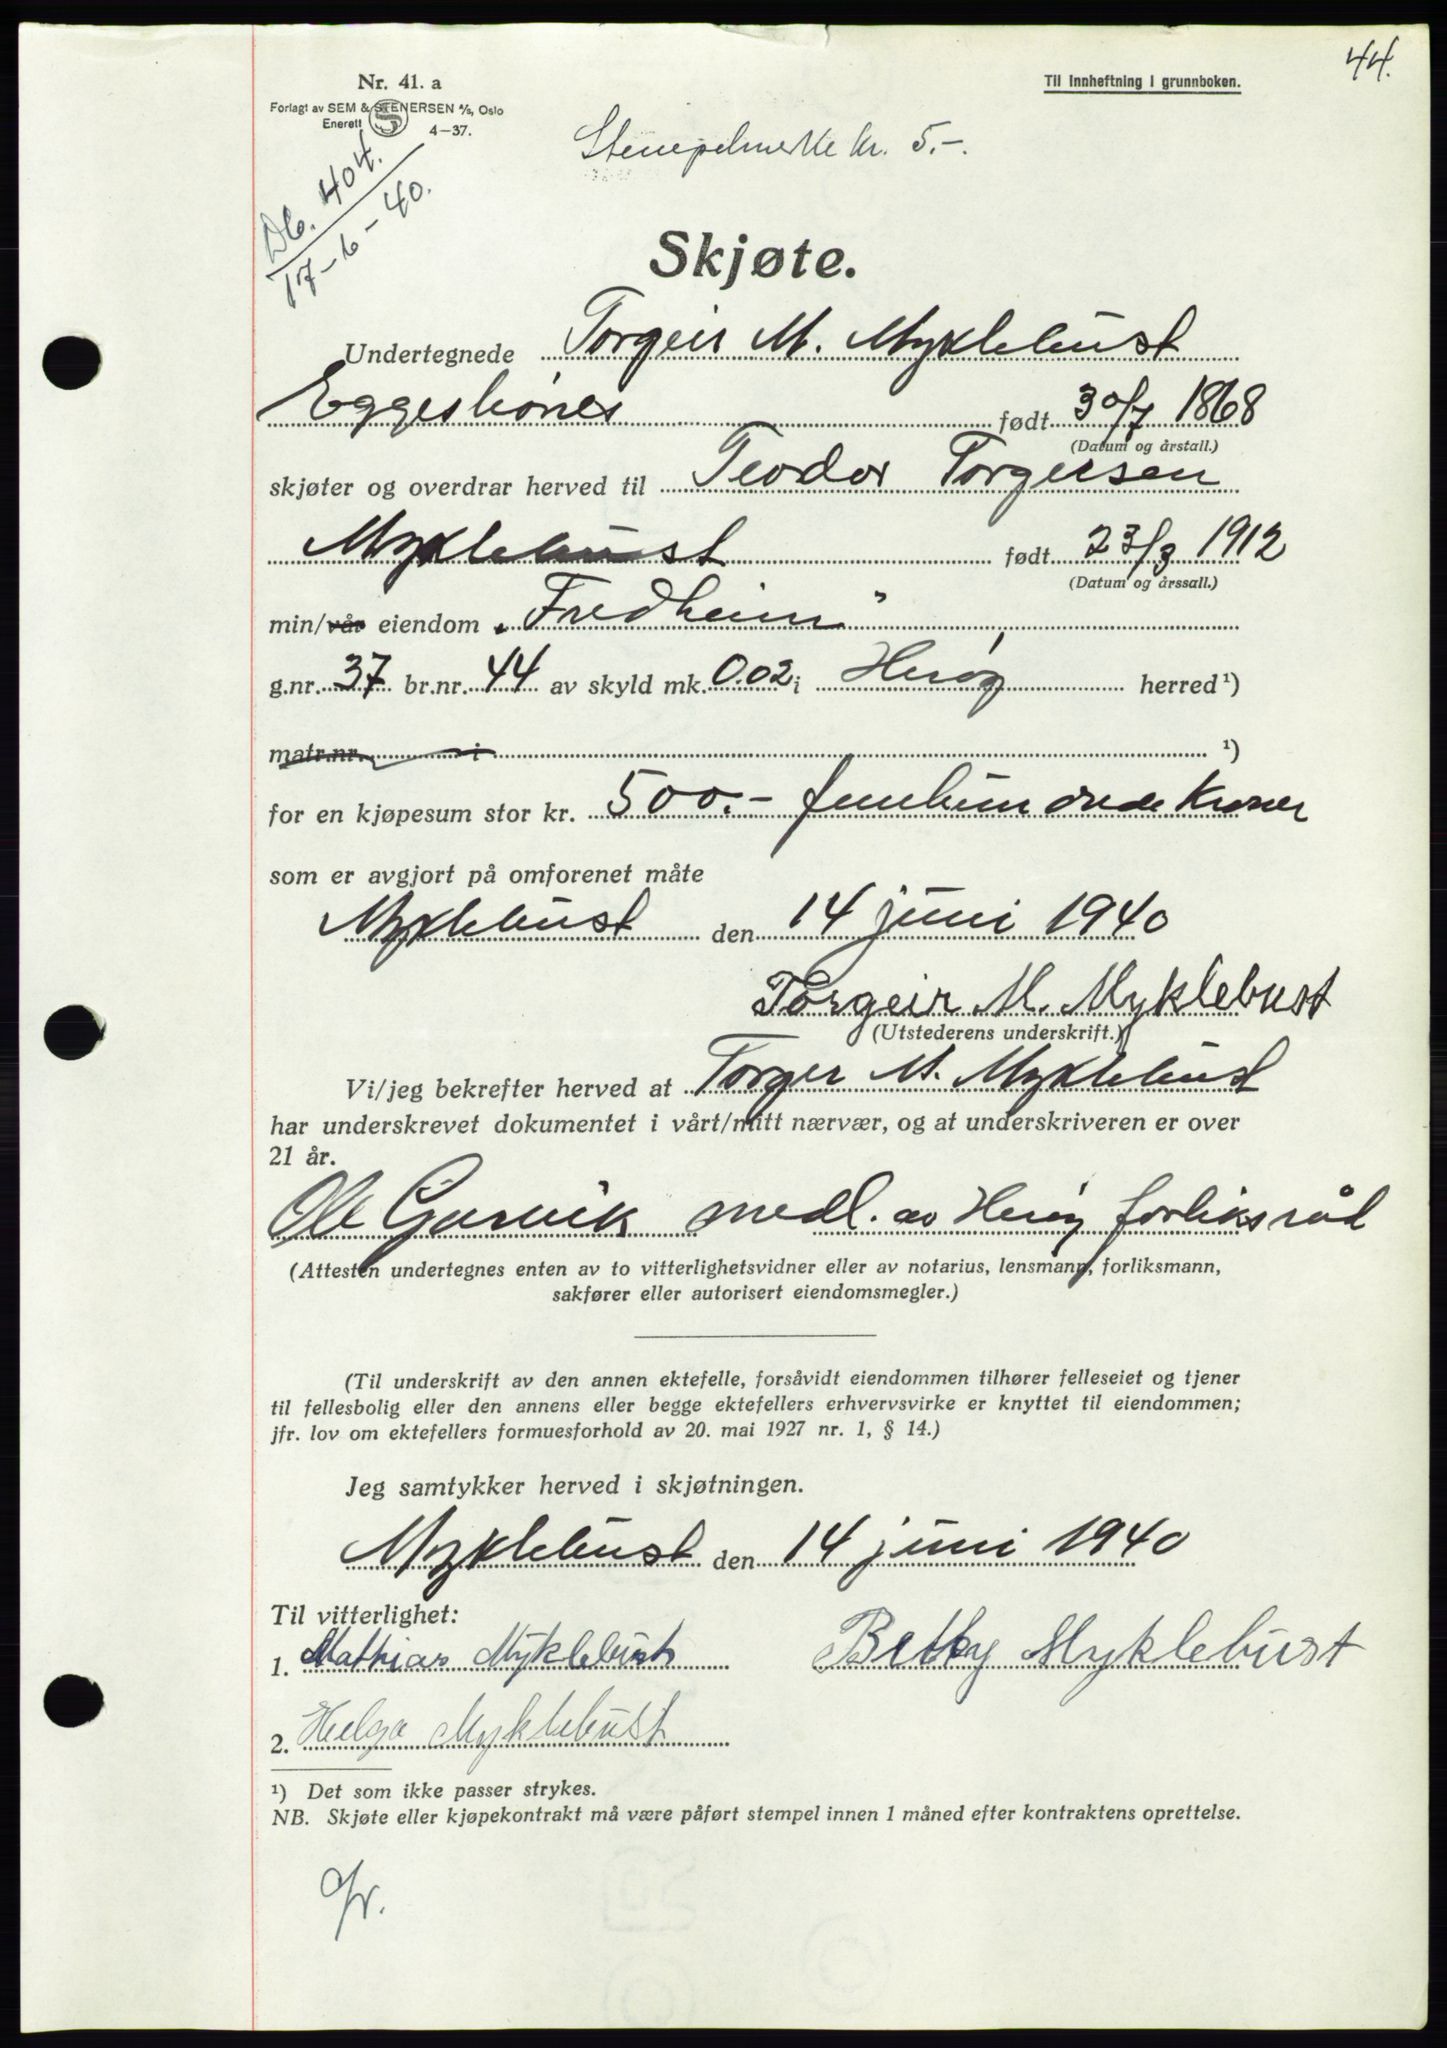 44.
Nr. 41. a
Til innheftning i grunnboken.
Forlagt av SEM & STENERSEN A/S, Oslo
Enerett 4-37.
Stempelmerke kr. 5.-.
Db. 404.
17-6-40.
Skjøte.
Undertegnede Torgeir M. Myklebust
Eggesbönes født 30/7 1868
(Datum og årstall.)
skjøter og overdrar herved til Teodor Torgersen
Myklebust født 23/3 1912
(Datum og årssall.)
min/vår eiendom „Fredheim"
g.nr. 37 br.nr. 44 av skyld mk. 0.02 i Herøy herred ¹)
matr.nr. i ¹)
for en kjøpesum stor kr. 500.- femhundrede kroner
som er avgjort på omforenet måte
Myklebust den 14 juni 1940
Torgeir M. Myklebust
(Utstederens underskrift.)
Vi/jeg bekrefter herved at Torger M. Myklebust
har underskrevet dokumentet i vårt/mitt nærvær, og at underskriveren er over
21 år.
Ole Gurvik medl. av Herøy forliksråd
(Attesten undertegnes enten av to vitterlighetsvidner eller av notarius, lensmann, forliksmann,
sakfører eller autorisert eiendomsmegler.)
(Til underskrift av den annen ektefelle, forsåvidt eiendommen tilhører felleseiet og tjener
til fellesbolig eller den annens eller begge ektefellers erhvervsvirke er knyttet til eiendommen;
jfr. lov om ektefellers formuesforhold av 20. mai 1927 nr. 1, § 14.)
Jeg samtykker herved i skjøtningen.
Myklebust den 14 juni 1940
Til vitterlighet:
1. Mathias Myklebust Betty Myklebust
2. Helga Myklebust
¹) Det som ikke passer strykes.
NB. Skjøte eller kjøpekontrakt må være påført stempel innen 1 måned efter kontraktens oprettelse.